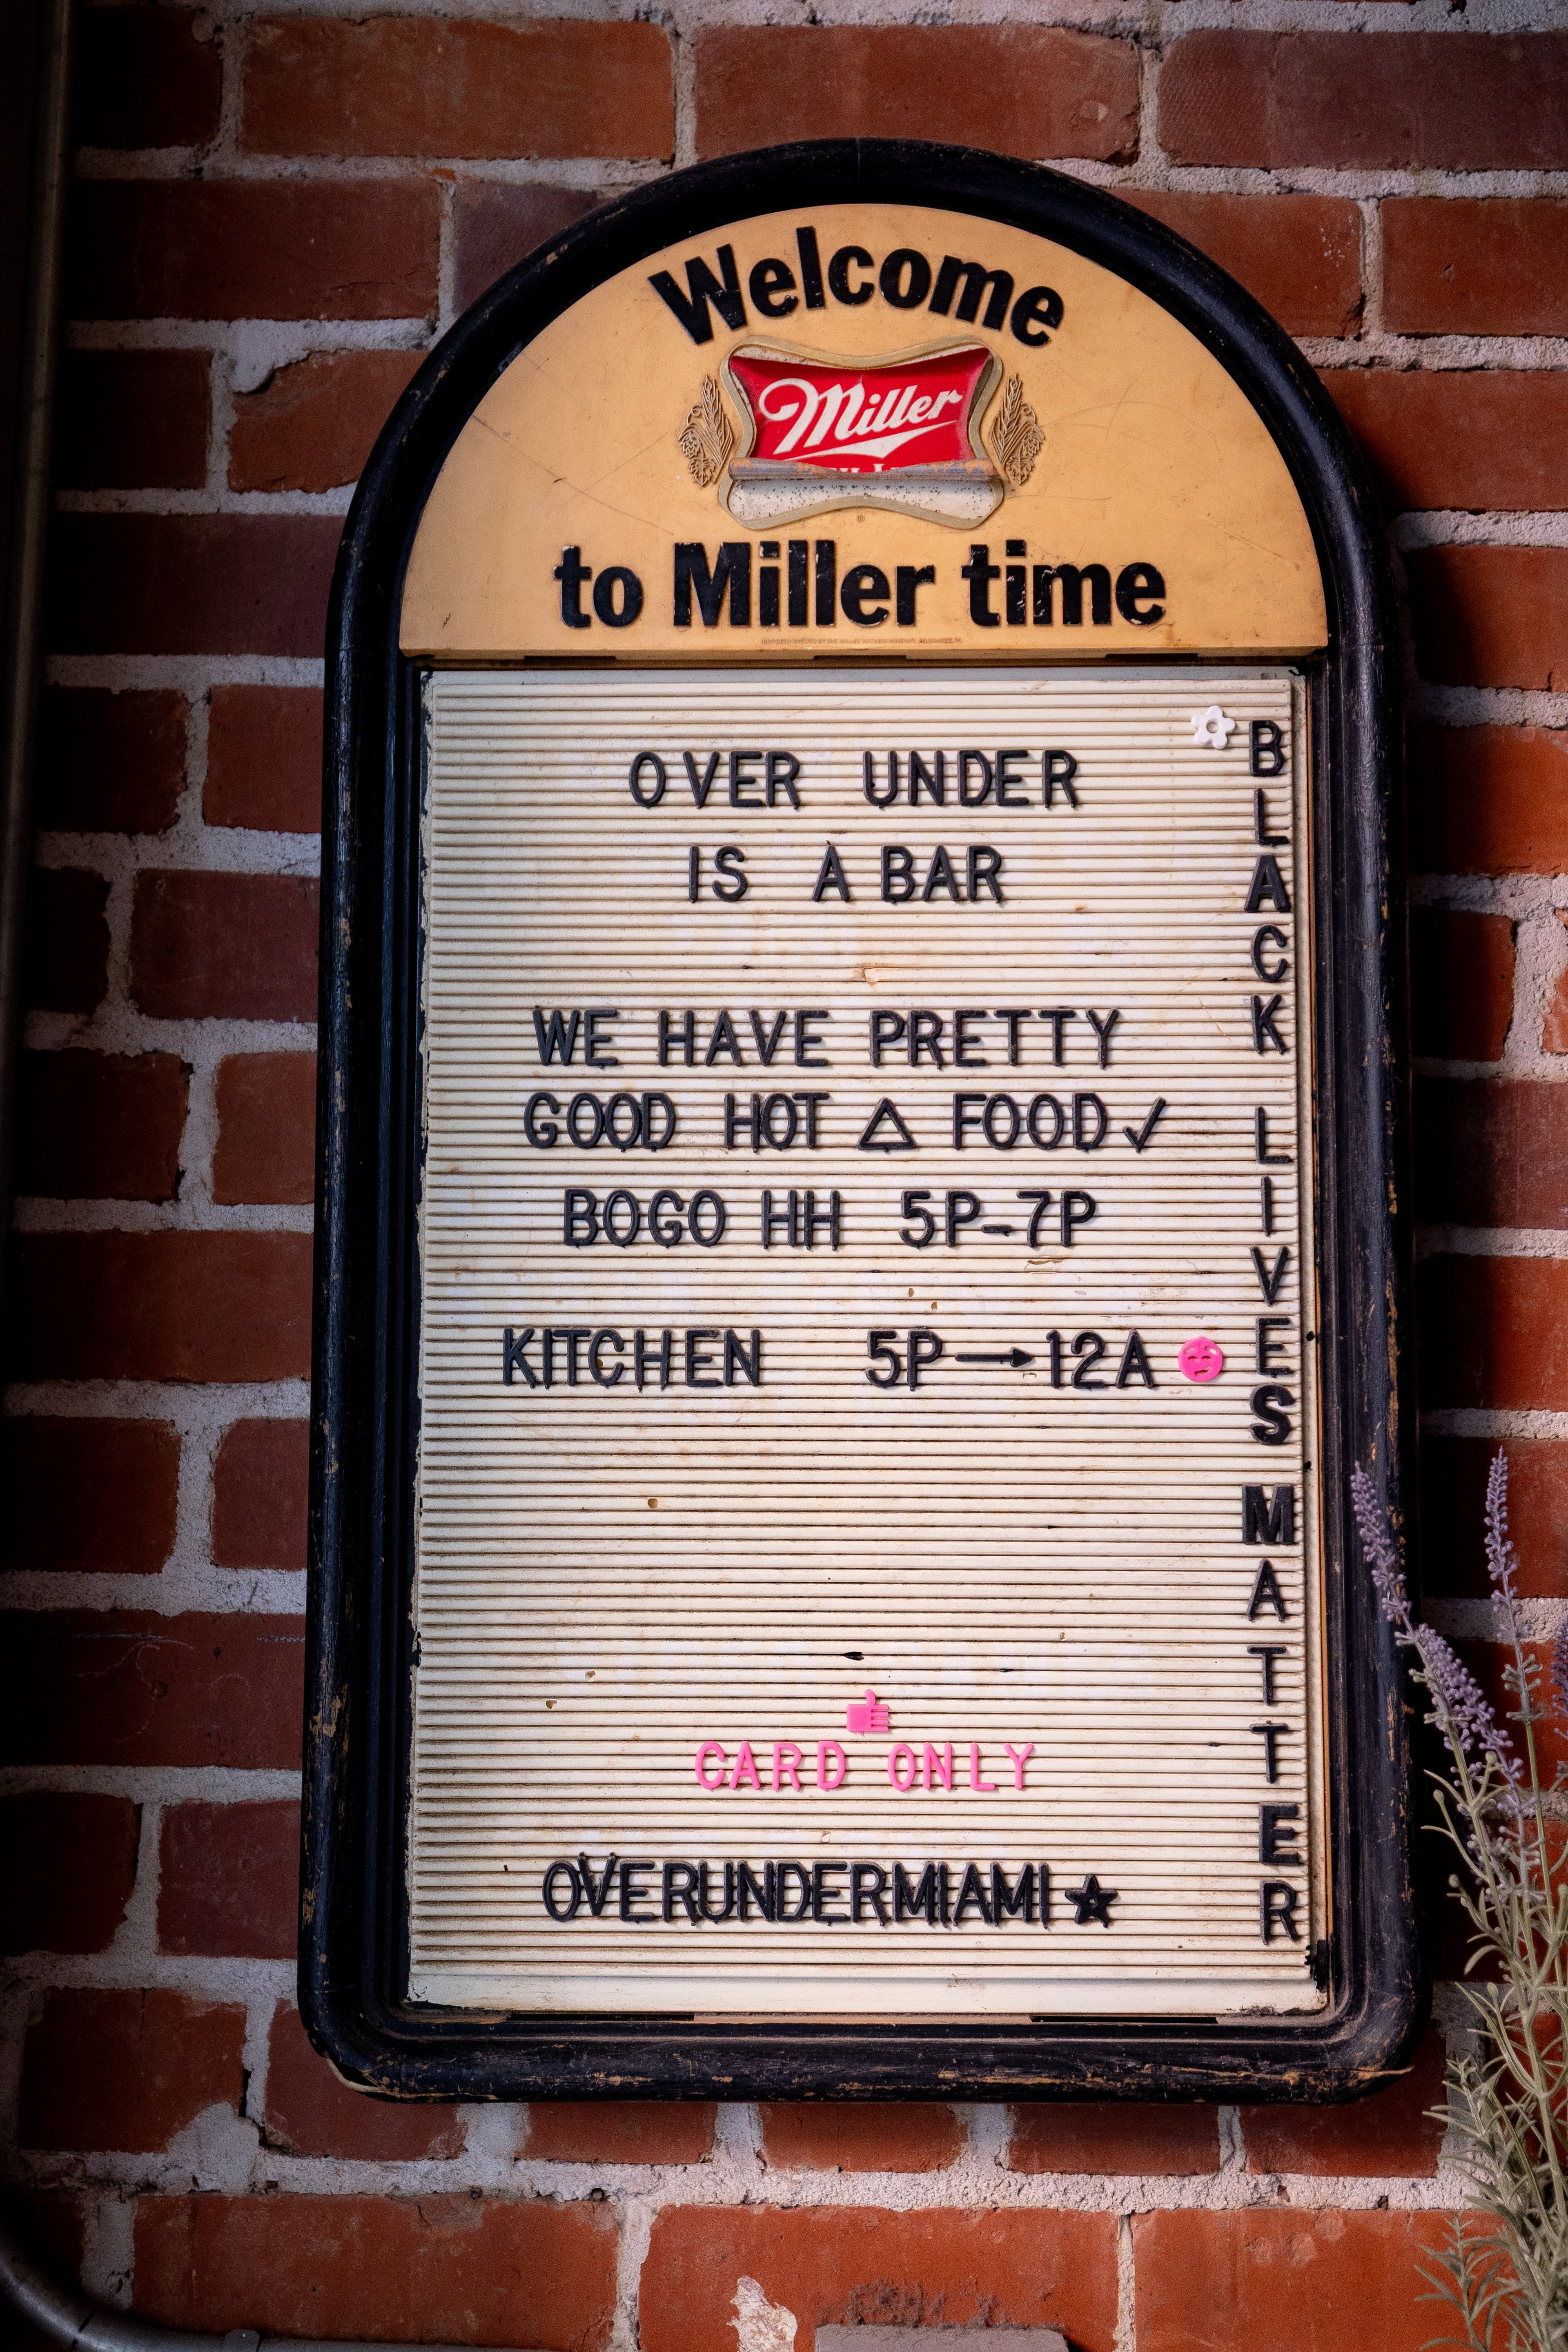 Welcome
Miller
to Miller time
OVER UNDER
IS A BAR
WE HAVE PRETTY
GOOD HOT △ FOOD ✓
BOGO HH 5P-7P
KITCHEN 5P→12A
CARD ONLY
OVERUNDERMIAMI ★
BLACK LIVES MATTER